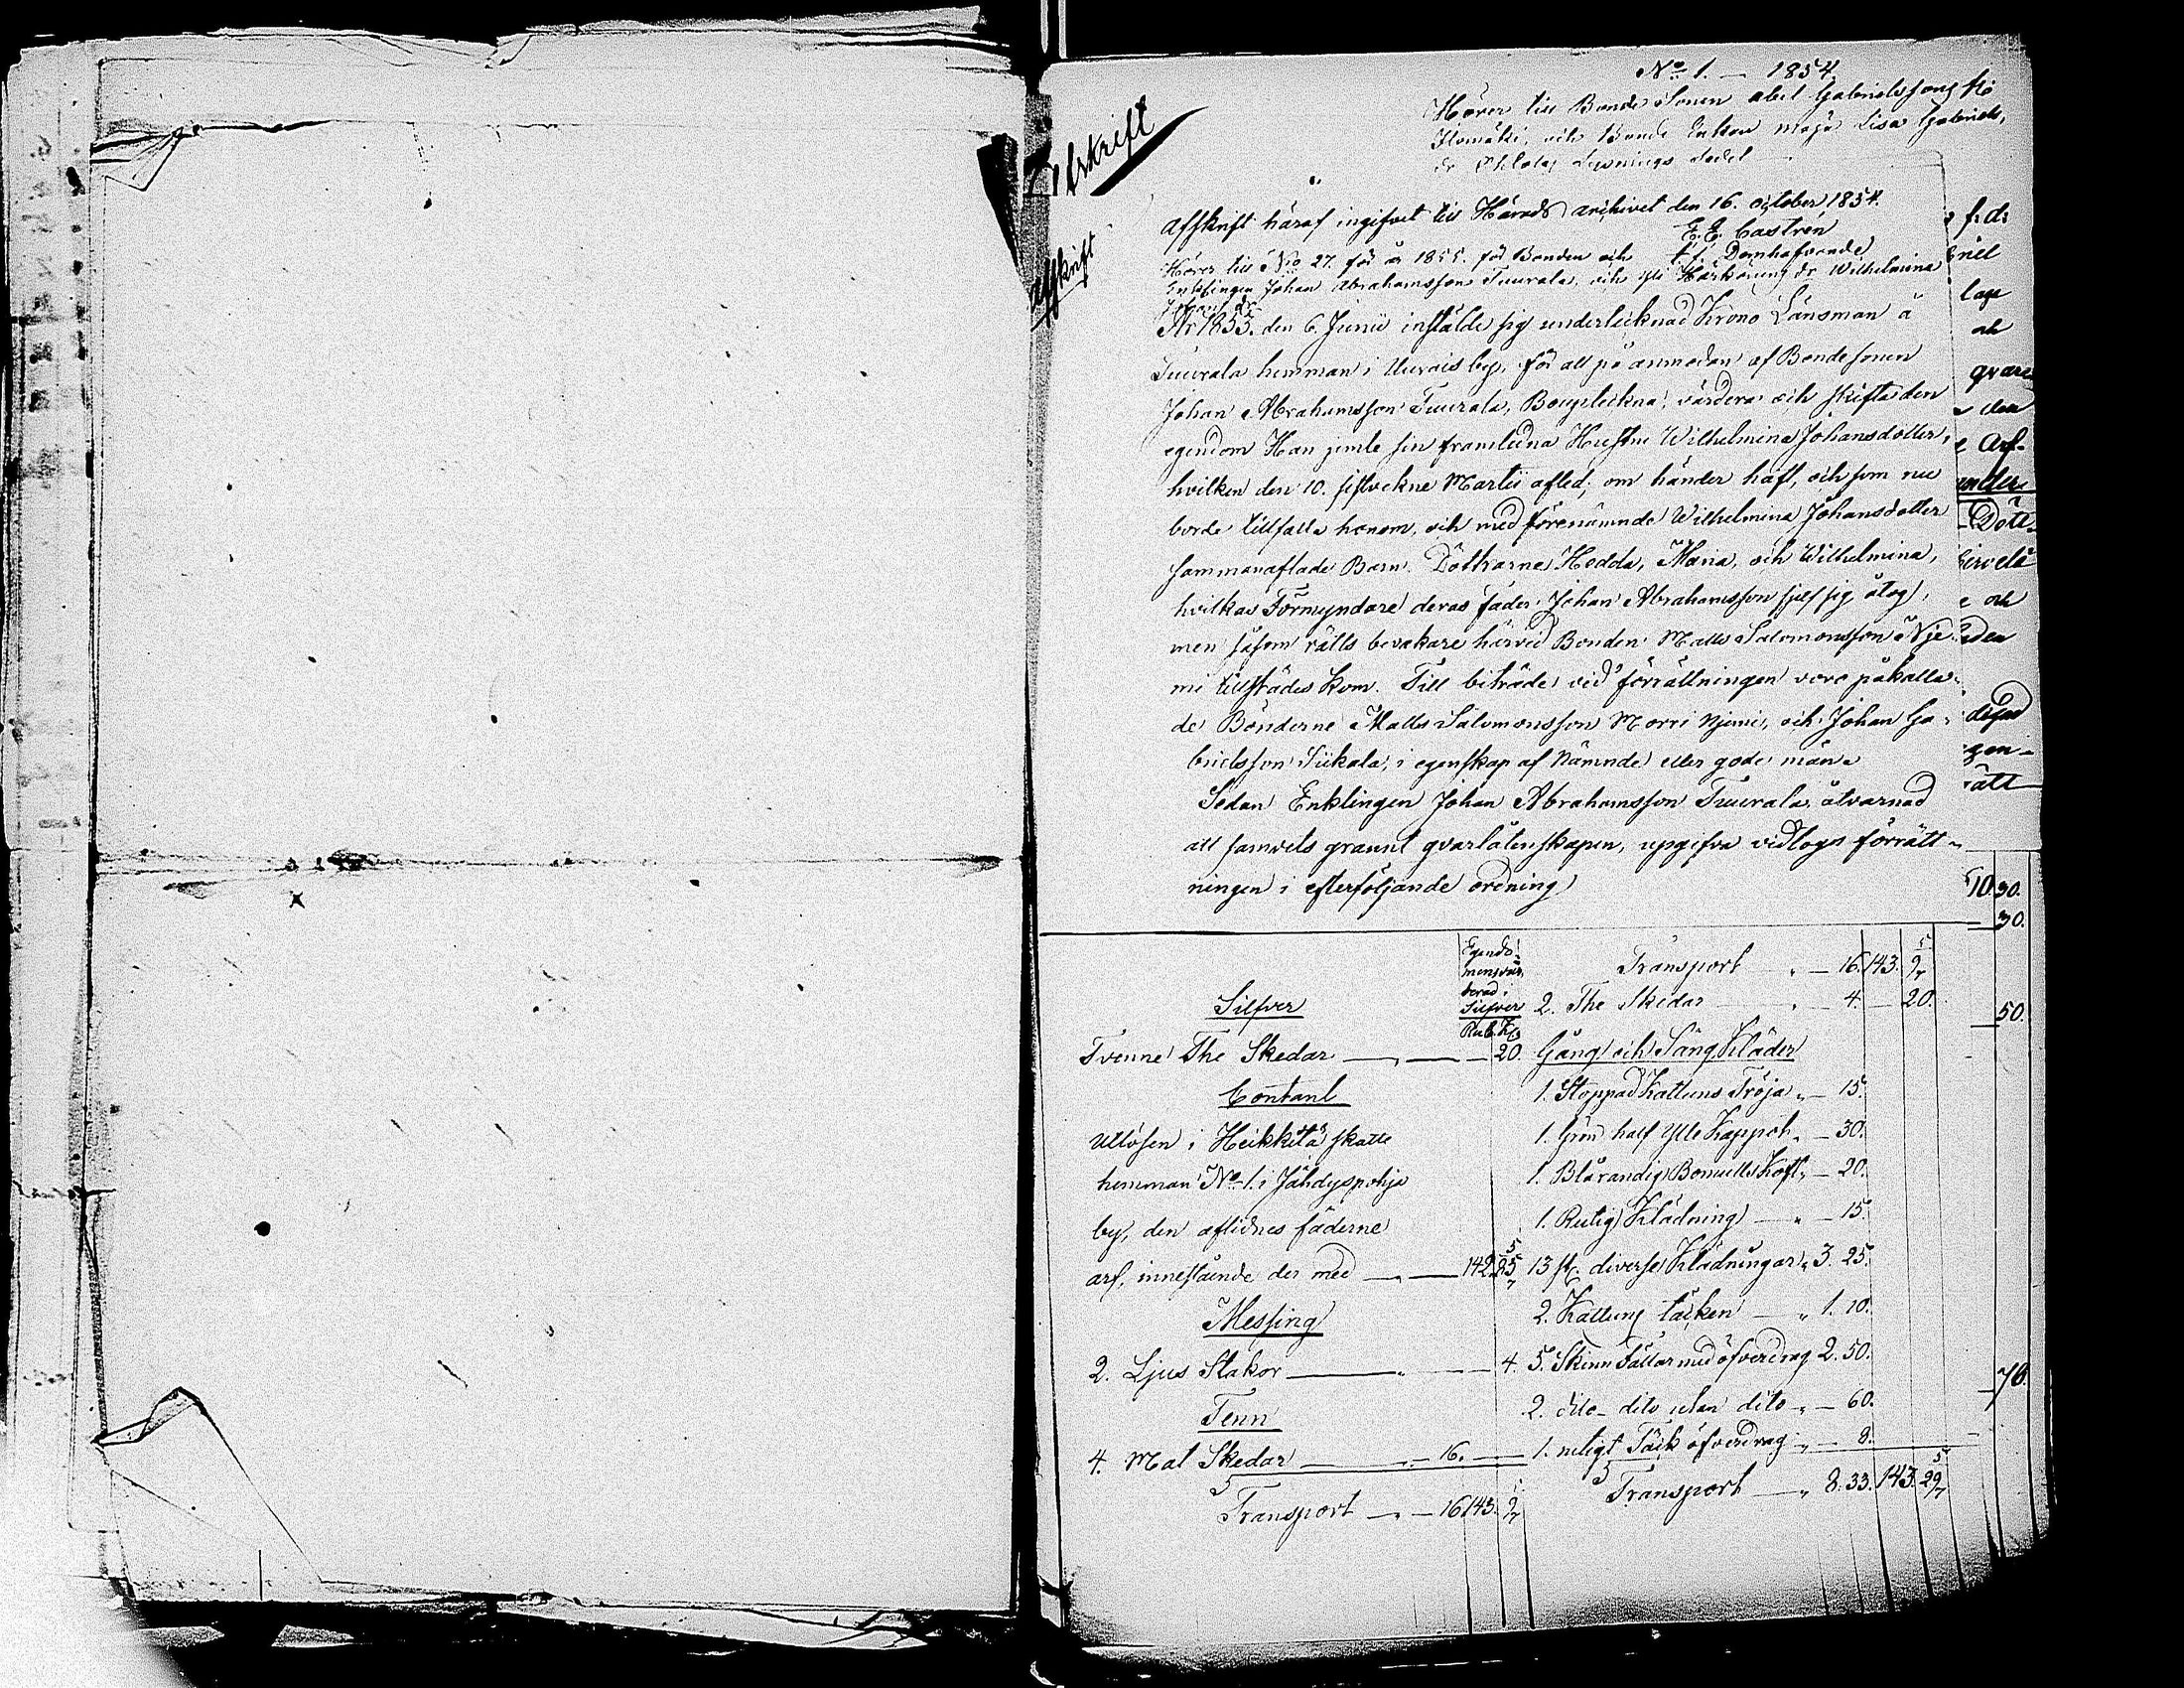 No 1. — 1854.
Hörer till Bonde Sonen Abel Gabrielssons
Ilomäki, och Bonde Enkan Maja Lisa Gabriels
dr Lysnings sedel
Afskrift
Afskrift häraf ingifvet till Härads archivet den 16. october 1854.
E. E. Castrén
t. f. Domhafvande
Afskrift
Hörer till No 27. för år 1855. för Bonden och
Enklingen Johan Abrahamsson Tuurala, och Wilhelmina
År 1853. den 6. Junii instälde sig undertecknad Krono Länsman å
Tuurala hemman i by, för att på anmodan af Bondesonen
Johan Abrahamsson Tuurala, Boupteckna, värdera och skifta den
egendom Han jemte sin framledna Hustru Wilhelmina Johansdotter,
hvilken den 10. sistvekne Martii afled, om händer haft, och som nu
borde tillfalla honom, och med förenämnde Wilhelmina Johansdotter
sammanaflade Barn. Döttrarne Hedda, Maria, och Wilhelmina,
hvilkas Förmyndare deras fader Johan Abrahamsson sjelf sig åtog,
men såsom rätts bevakare härvid Bonden Matts Salomonsson Nje-
mi tillstädes kom. Till biträde vid förrättningen voro påkalla-
de Bönderne Matts Salomonsson Morri Njemi, och Johan Ga-
brielsson Siikala, i egenskap af Nämnde eller gode män.
Sedan Enklingen Johan Abrahamsson Tuurala åtvarnad
att samvets grannt qvarlåtenskapen, uppgifva vidtogs förrätt-
ningen i efterföljande ordning
Egendo-
mens vär-
derad i
Silfver
Rub. K.
Silfver
Tvenne The Skedar — 20.
Contant
Utlösen i Heikkilä skatte
hemman No 1. i Jähdyspohja
by, den aflidnes fäderne
arf, innestående der med — 142. 85 5/7
Messing
2. Ljus Stakor — 4.
Tenn
4. Mat Skedar — 16.
Transport — 16 143. 9 5/7
Transport — 16. 143. 9 5/7
2. The Skedar — 4. — 20.
Gång och Säng Kläder
1. Stoppad Kattuns Tröja — 15.
1. Grön half Ylle Kappot — 30.
1. Blårandig Bomulls Koft — 20.
1. Rutig Klädning — 15.
13 st. diverse Klädningar 3. 25.
2. Kattuns täcken — 1. 10.
5. Skinn Fällar med öfverdrag 2. 50.
2. dito dito utan dito — 60.
1. rutigt Täck öfverdrag — 8.
Transport — 8. 33. 143. 29 5/7
f. d.
riel
lage
och
qvar
den
Arf-
Dött-
e och
den
gen-
rätt
10 30.
30.
50.
70.